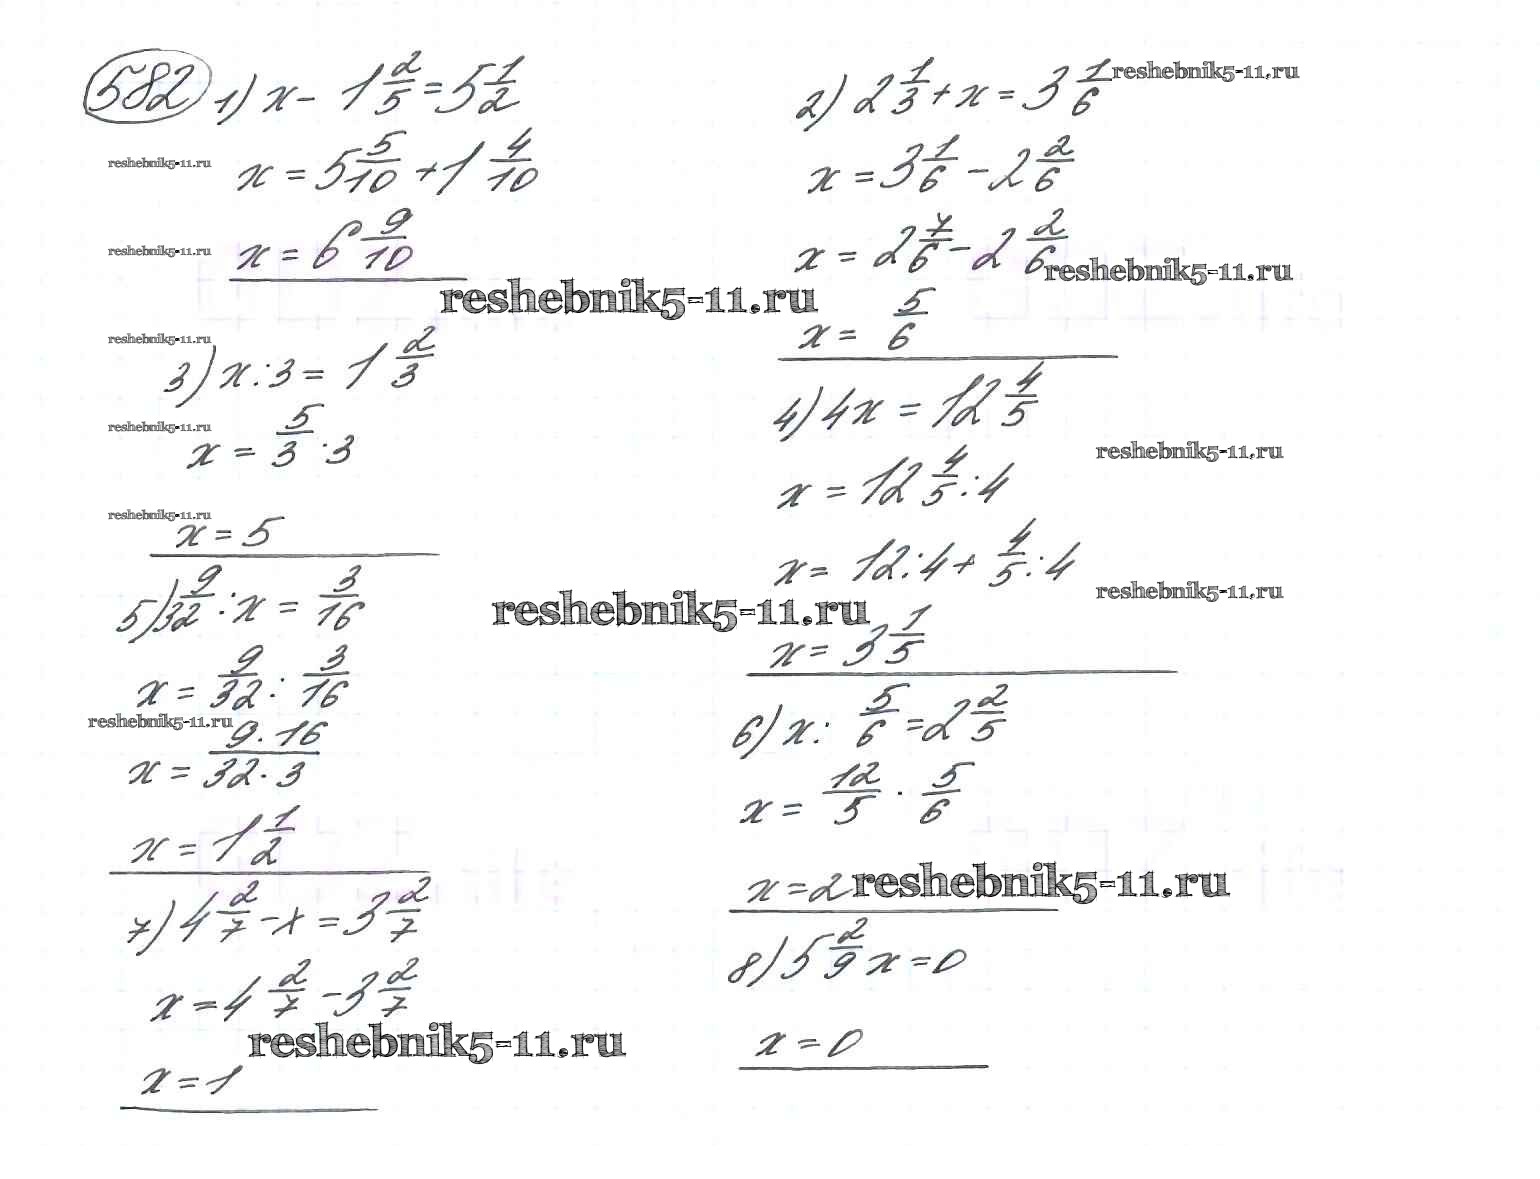 582 1) x - 1 2/5 = 5 1/2
x = 5 5/10 + 1 4/10
x = 6 9/10
2) 2 1/3 + x = 3 1/6
x = 3 1/6 - 2 2/6
x = 2 7/6 - 2 2/6
x = 5/6
3) x : 3 = 1 2/3
x = 5/3 · 3
x = 5
4) 4x = 12 4/5
x = 12 4/5 : 4
x = 12 : 4 + 4/5 : 4
x = 3 1/5
5) 9/32 : x = 3/16
x = 9/32 : 3/16
x = 9·16/32·3
x = 1 1/2
6) x : 5/6 = 2 2/5
x = 12/5 · 5/6
x = 2
7) 4 2/7 - x = 3 2/7
x = 4 2/7 - 3 2/7
x = 1
8) 5 2/9 x = 0
x = 0
reshebnik5-11.ru
reshebnik5-11.ru
reshebnik5-11.ru
reshebnik5-11.ru
reshebnik5-11.ru
reshebnik5-11.ru
reshebnik5-11.ru
reshebnik5-11.ru
reshebnik5-11.ru
reshebnik5-11.ru
reshebnik5-11.ru
reshebnik5-11.ru
reshebnik5-11.ru
reshebnik5-11.ru